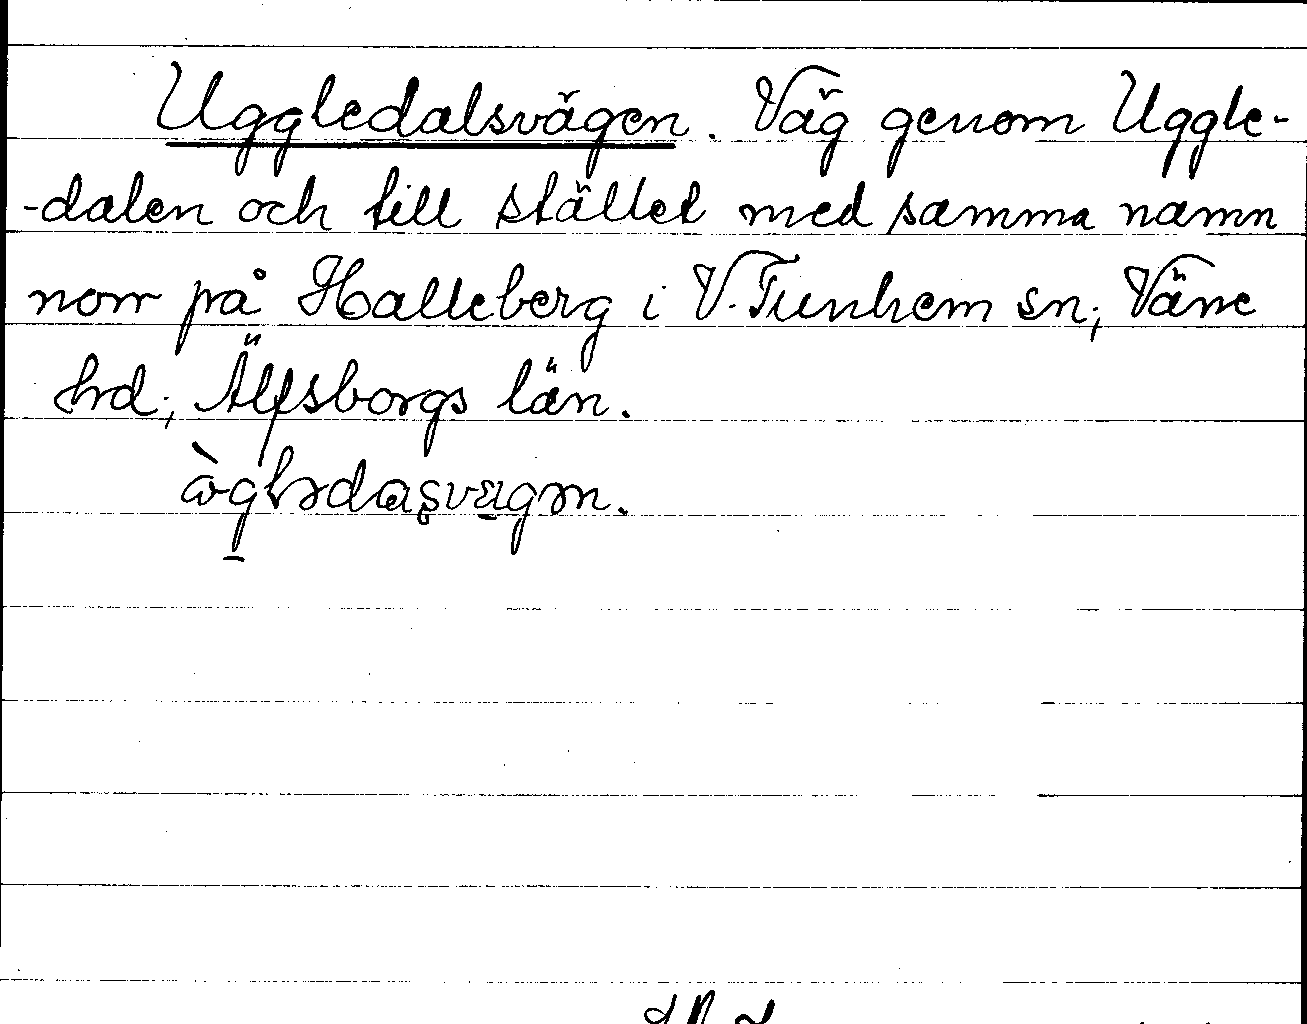 Uggledalsvägen. Väg genom Uggle-
-dalen och till stället med samma namn
norr på Halleberg i V. Tunhem sn; Väne
hrd; Älfsborgs län.